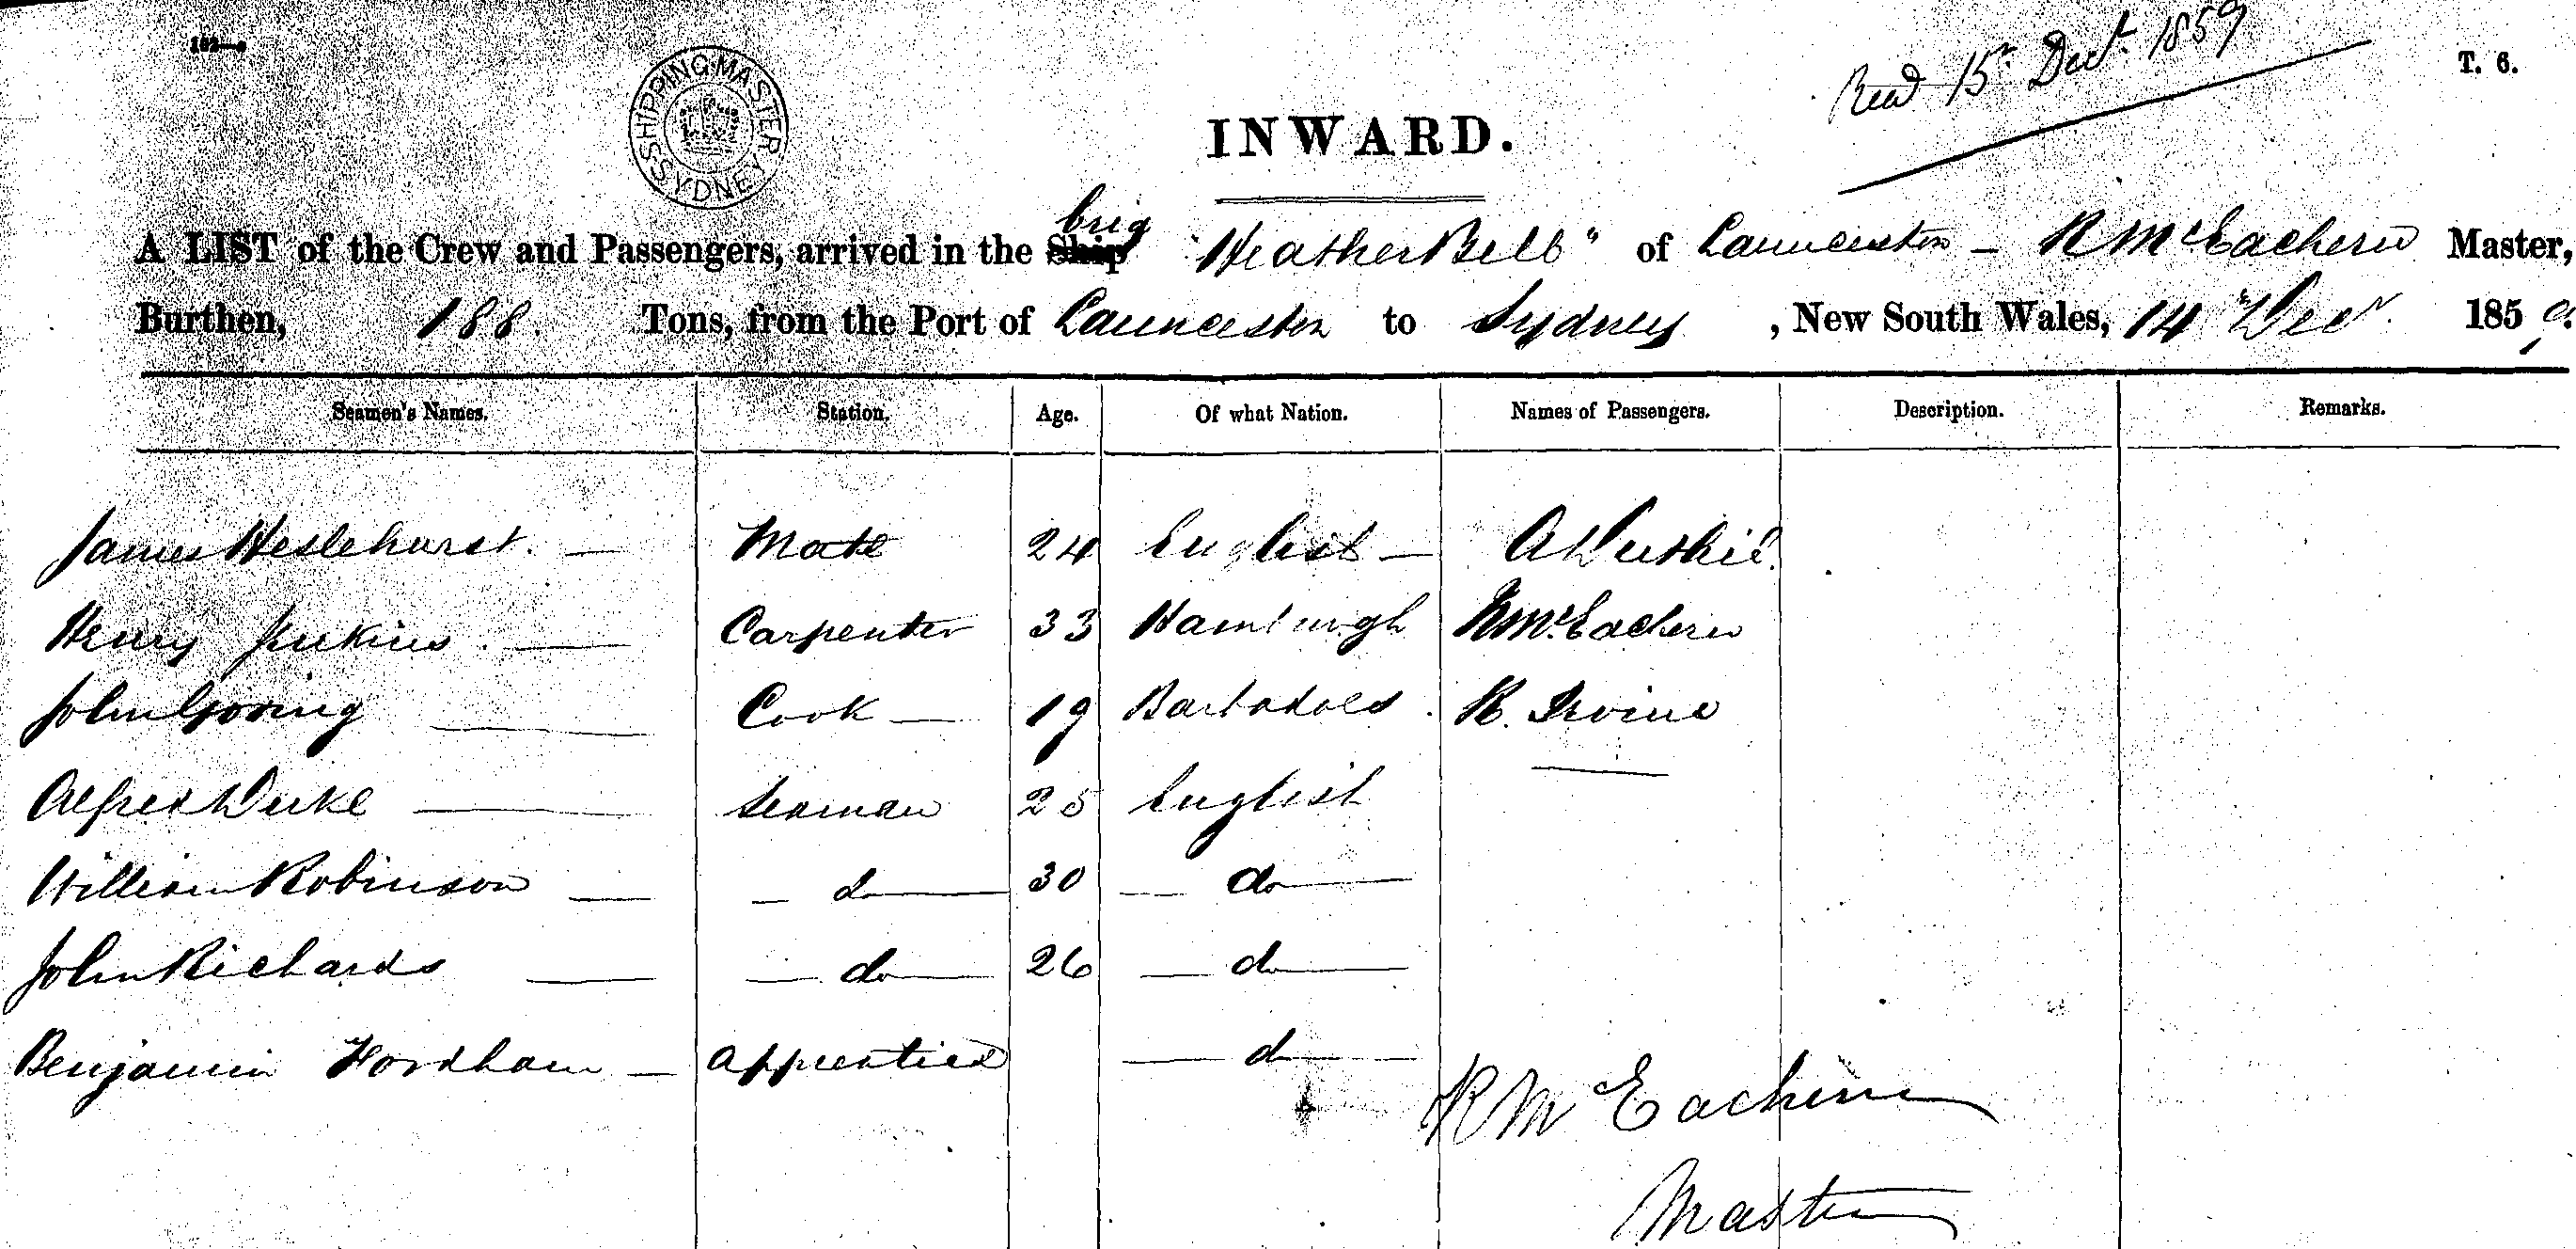 Recd 15th Decr 1859
T. 6.
SHIPPING MASTERS SYDNEY
INWARD.
brig
A LIST of the Crew and Passengers, arrived in the Ship "Heather Bell" of Launceston - R McEachern Master,
Burthen, 188. Tons, from the Port of Launceston to Sydney, New South Wales, 14 Decr. 1859.
Seamen's Names. Station. Age. Of what Nation. Names of Passengers. Description. Remarks.
James Heslehurst. Mate 24 English
Henry Jenkins Carpenter 33 Hamburgh McEachern
John Goring Cook 19 Barbadoes R. Irvine
Alfred Duke Seaman 25 English
William Robinson do 30 do
John Richards do 26 do
Benjamin Fordham apprentice do
R McEachern
Master